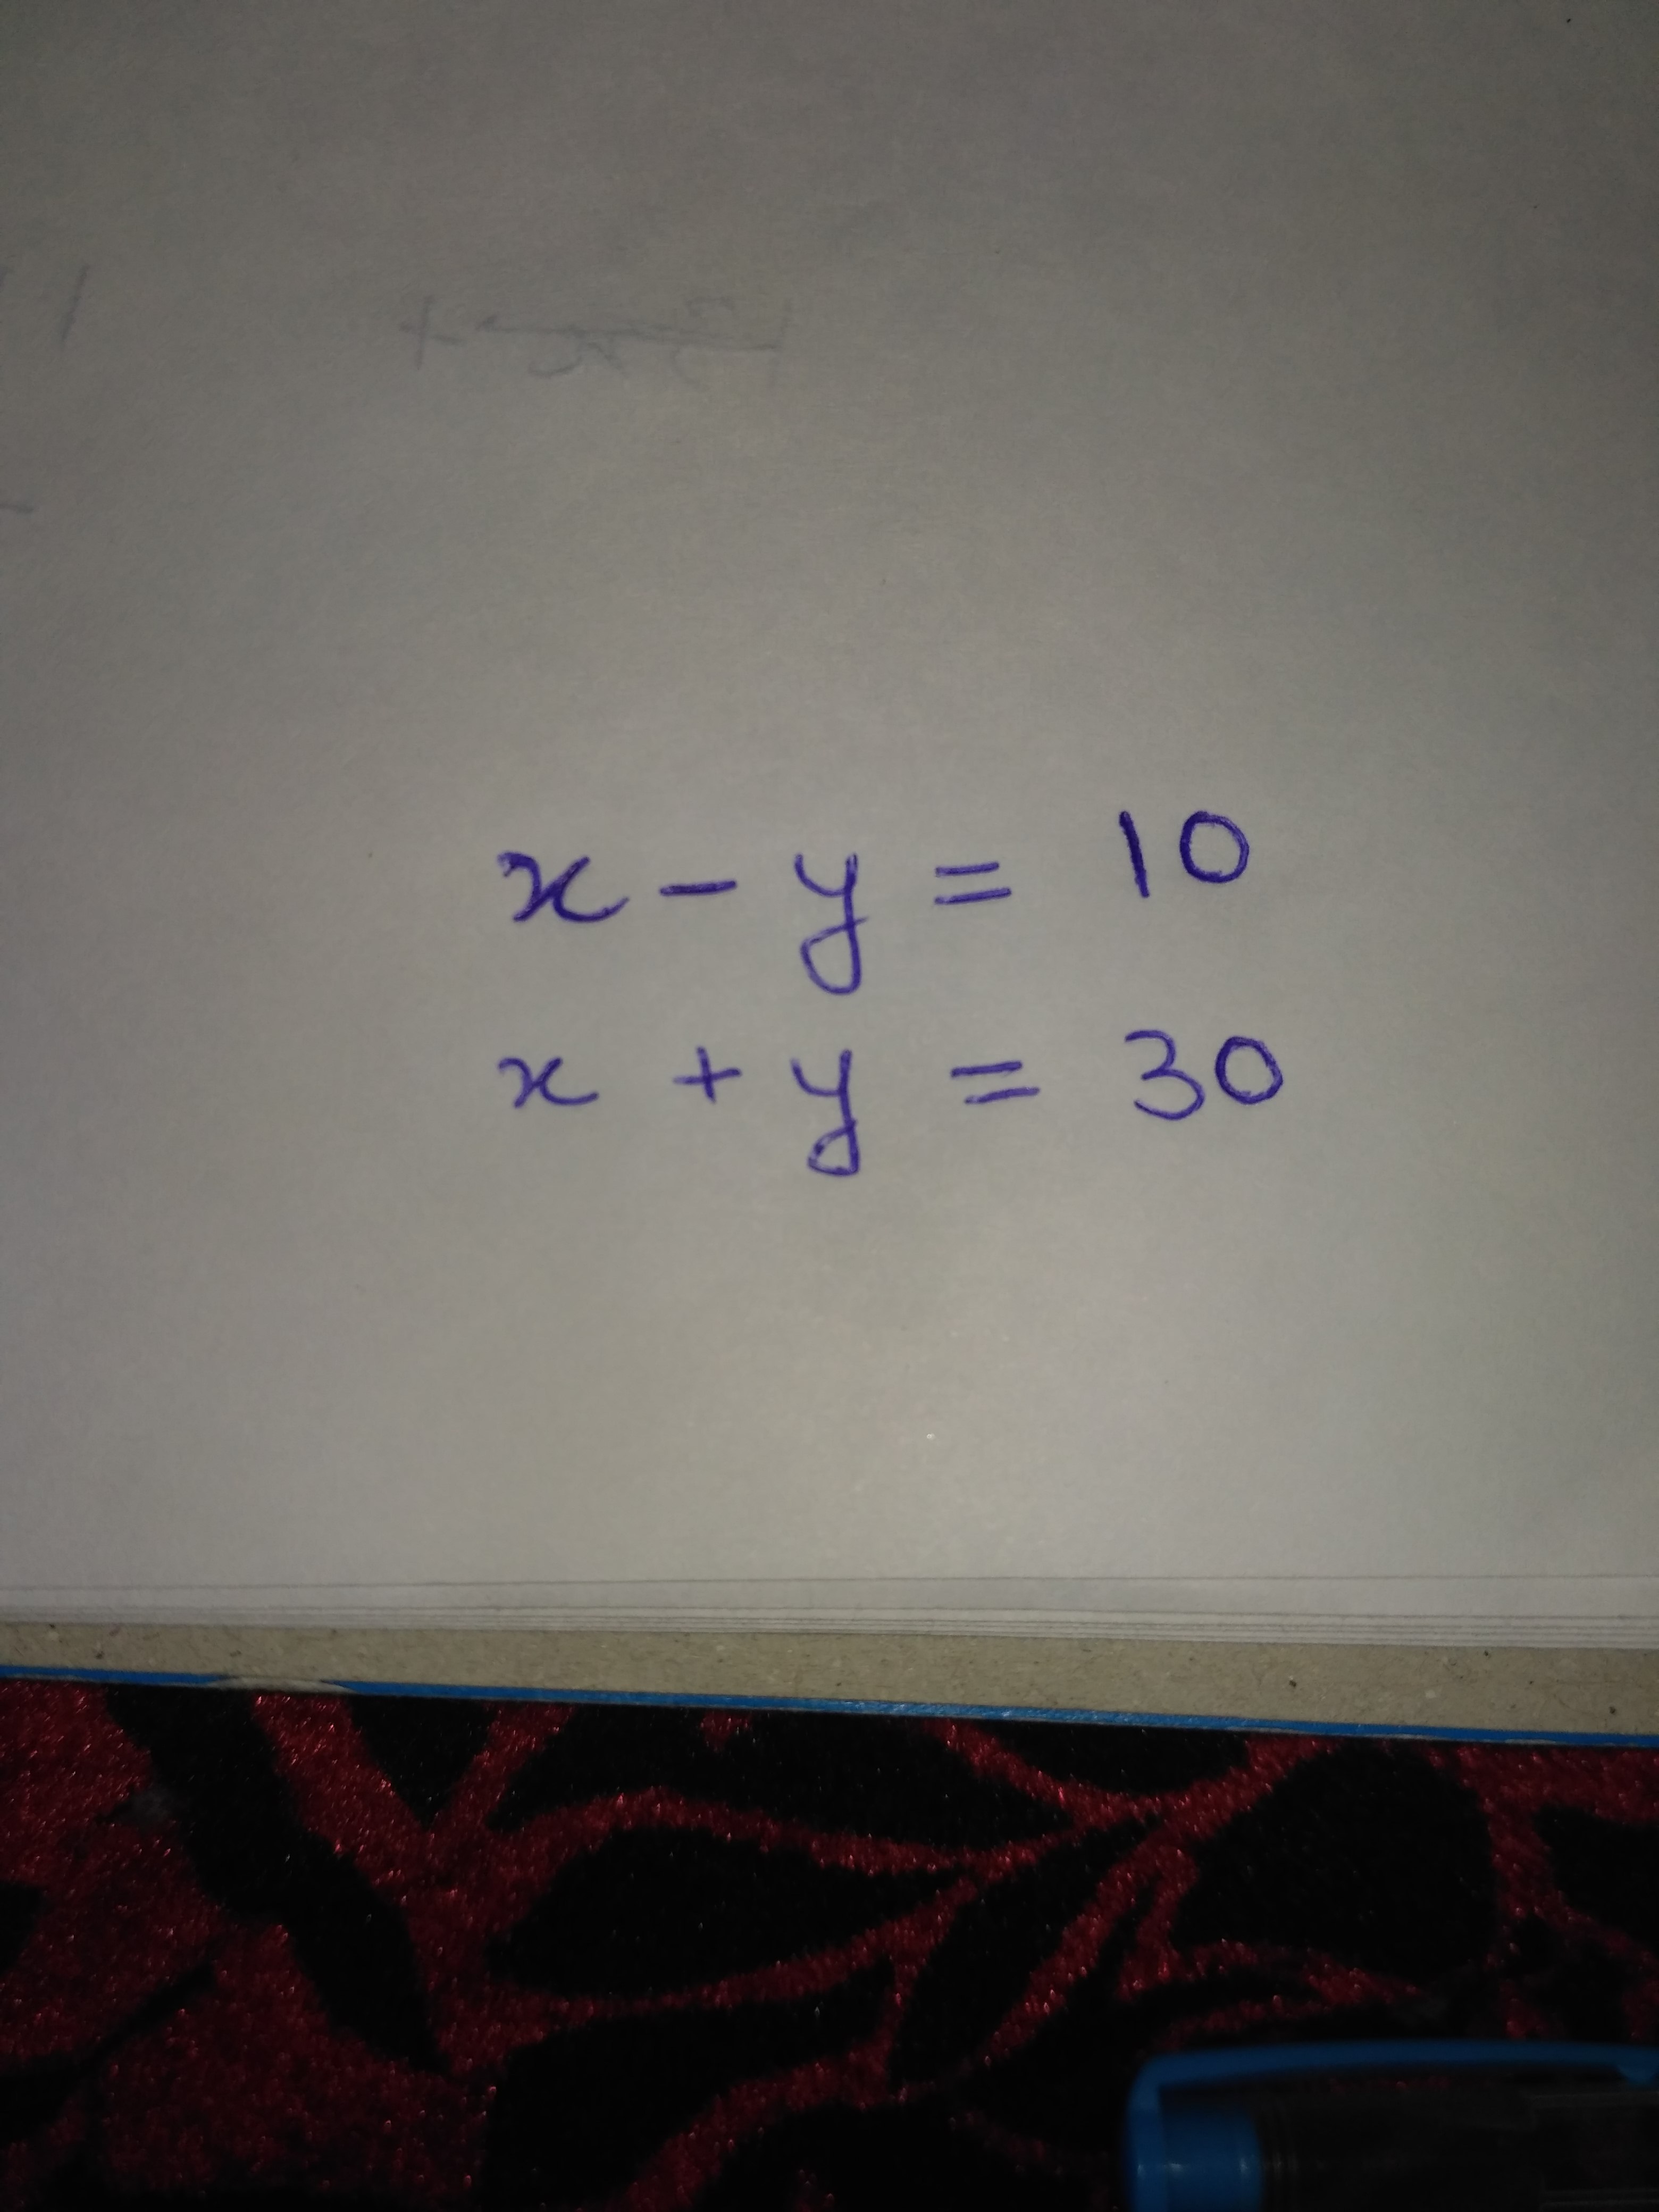 x - y = 10
x + y = 30